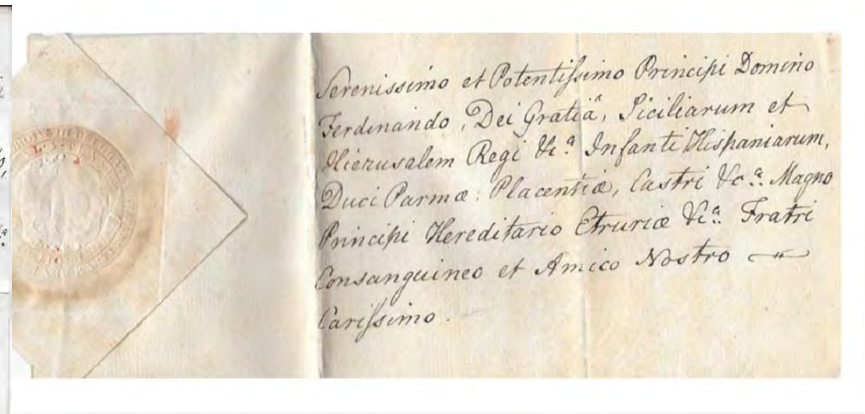 Serenissimo et Potentissimo Principi Domino
Ferdinando, Dei Gratiâ, Siciliarum et
Hierusalem Regi &c.ª Infanti Hispaniarum,
Duci Parmæ, Placentiæ, Castri &c.ª Magno
Principi Hereditario Etruriæ &c.ª Fratri
Consanguineo et Amico Nostro
Carissimo.